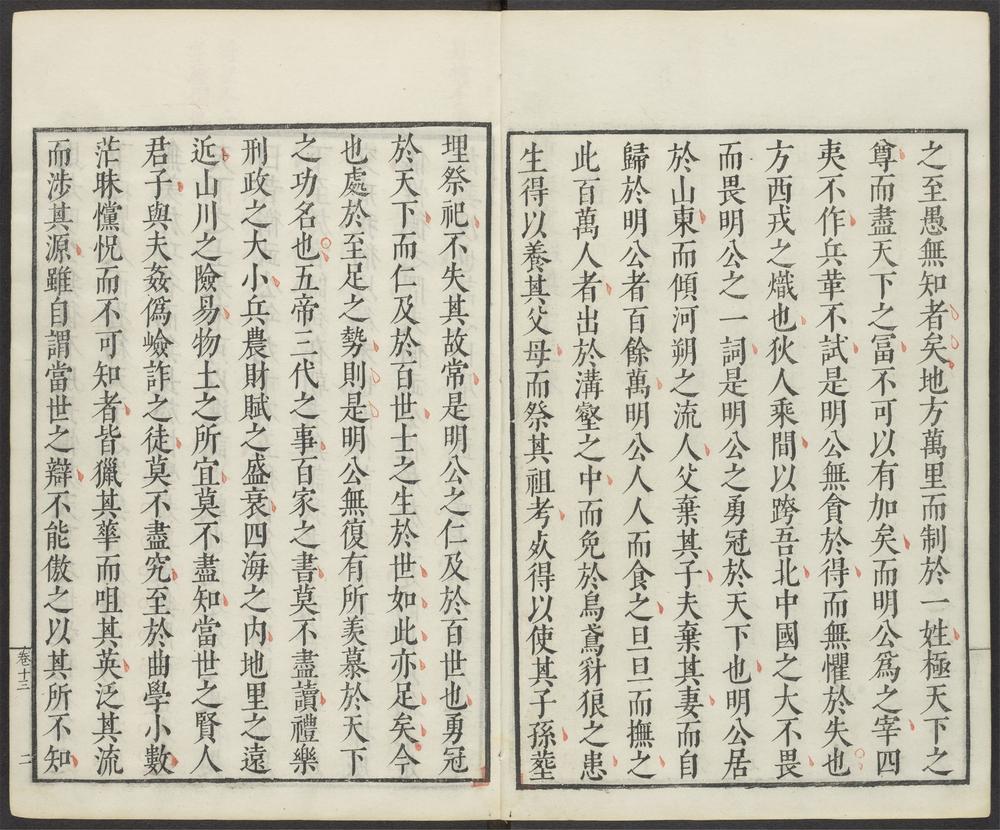 之至愚無知者矣地方萬里而制於一姓極天下之
尊而盡天下之富不可以有加矣而明公爲之宰四
夷不作兵革不試是明公無貪於得而無懼於失也
方西戎之熾也狄人乘間以跨吾北中國之大不畏
而畏明公之一詞是明公之勇冠於天下也明公居
於山東而傾河朔之流人父棄其子夫棄其妻而自
歸於明公者百餘萬明公人人而食之旦旦而撫之
此百萬人者出於溝壑之中而免於烏鳶豺狼之患
生得以養其父母而祭其祖考死得以使其子孫塟
埋祭祀不失其故常是明公之仁及於百世也勇冠
於天下而仁及於百世士之生於世如此亦足矣今
也處於至足之勢則是明公無復有所羨慕於天下
之功名也五帝三代之事百家之書莫不盡讀禮樂
刑政之大小兵農財賦之盛衰四海之内地里之遠
近山川之險易物土之所宜莫不盡知當世之賢人
君子與夫姦僞嶮詐之徒莫不盡究至於曲學小數
茫昧懭怳而不可知者皆獵其華而咀其英泛其流
而涉其源雖自謂當世之辯不能傲之以其所不知
卷十三
二